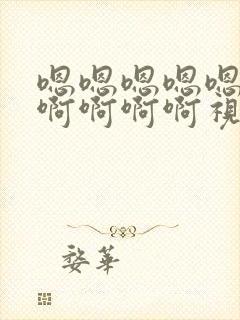 嗯嗯嗯嗯嗯
啊啊啊啊視
婺華